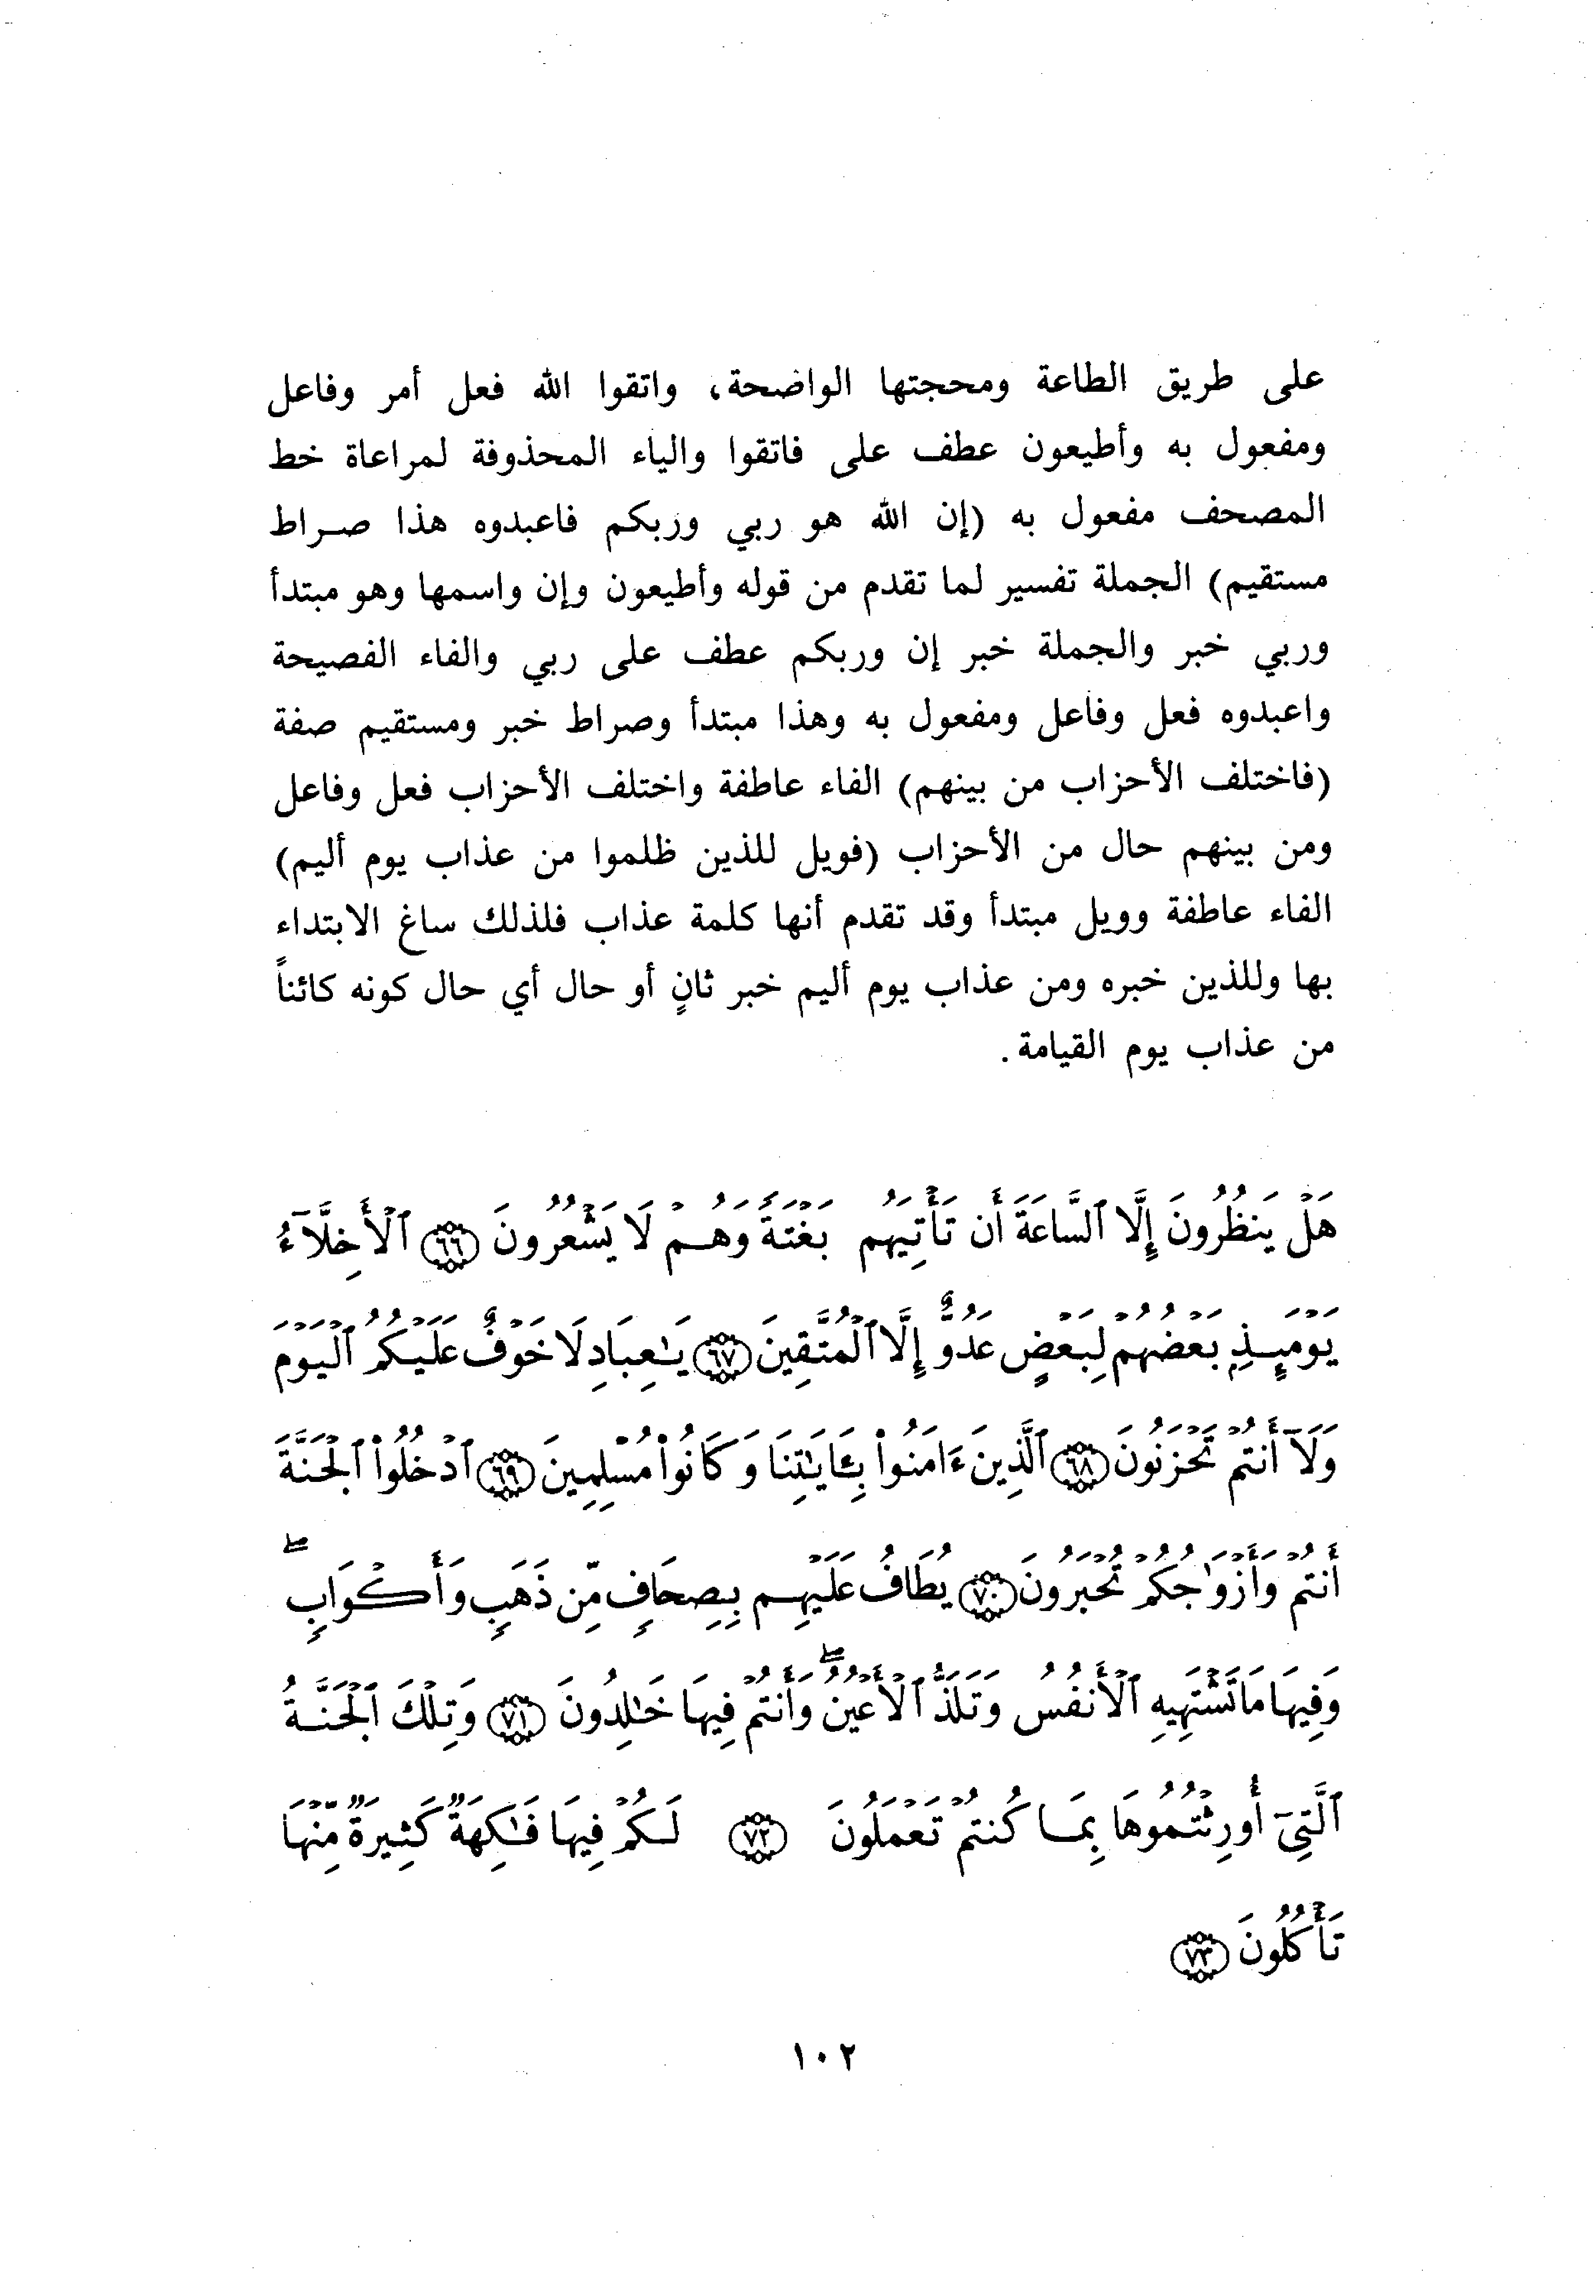 على طريق الطاعة ومحجتها الواضحة، واتقوا الله فعل أمر وفاعل
ومفعول به وأطيعون عطف على فاتقوا والياء المحذوفة لمراعاة خط
المصحف مفعول به (إن الله هو ربي وربكم فاعبدوه هذا صراط
مستقيم) الجملة تفسير لما تقدم من قوله وأطيعون وإن واسمها وهو مبتدأ
وربي خبر والجملة خبر إن وربكم عطف على ربي والفاء الفصيحة
واعبدوه فعل وفاعل ومفعول به وهذا مبتدأ وصراط خبر ومستقيم صفة
(فاختلف الأحزاب من بينهم) الفاء عاطفة واختلف الأحزاب فعل وفاعل
ومن بينهم حال من الأحزاب (فويل للذين ظلموا من عذاب يوم أليم)
الفاء عاطفة وويل مبتدأ وقد تقدم أنها كلمة عذاب فلذلك ساغ الابتداء
بها وللذين خبره ومن عذاب يوم أليم خبر ثانٍ أو حال أي حال كونه كائناً
من عذاب يوم القيامة.
هَلْ يَنظُرُونَ إِلَّا ٱلسَّاعَةَ أَن تَأْتِيَهُم بَغْتَةً وَهُمْ لَا يَشْعُرُونَ ٦٦ ٱلْأَخِلَّآءُ
يَوْمَئِذٍ بَعْضُهُمْ لِبَعْضٍ عَدُوٌّ إِلَّا ٱلْمُتَّقِينَ ٦٧ يَٰعِبَادِ لَا خَوْفٌ عَلَيْكُمُ ٱلْيَوْمَ
وَلَآ أَنتُمْ تَحْزَنُونَ ٦٨ ٱلَّذِينَ ءَامَنُوا۟ بِـَٔايَٰتِنَا وَكَانُوا۟ مُسْلِمِينَ ٦٩ ٱدْخُلُوا۟ ٱلْجَنَّةَ
أَنتُمْ وَأَزْوَٰجُكُمْ تُحْبَرُونَ ٧٠ يُطَافُ عَلَيْهِم بِصِحَافٍ مِّن ذَهَبٍ وَأَكْوَابٍ ۖ
وَفِيهَا مَا تَشْتَهِيهِ ٱلْأَنفُسُ وَتَلَذُّ ٱلْأَعْيُنُ ۖ وَأَنتُمْ فِيهَا خَٰلِدُونَ ٧١ وَتِلْكَ ٱلْجَنَّةُ
ٱلَّتِىٓ أُورِثْتُمُوهَا بِمَا كُنتُمْ تَعْمَلُونَ ٧٢ لَكُمْ فِيهَا فَٰكِهَةٌ كَثِيرَةٌ مِّنْهَا
تَأْكُلُونَ ٧٣
١٠٢